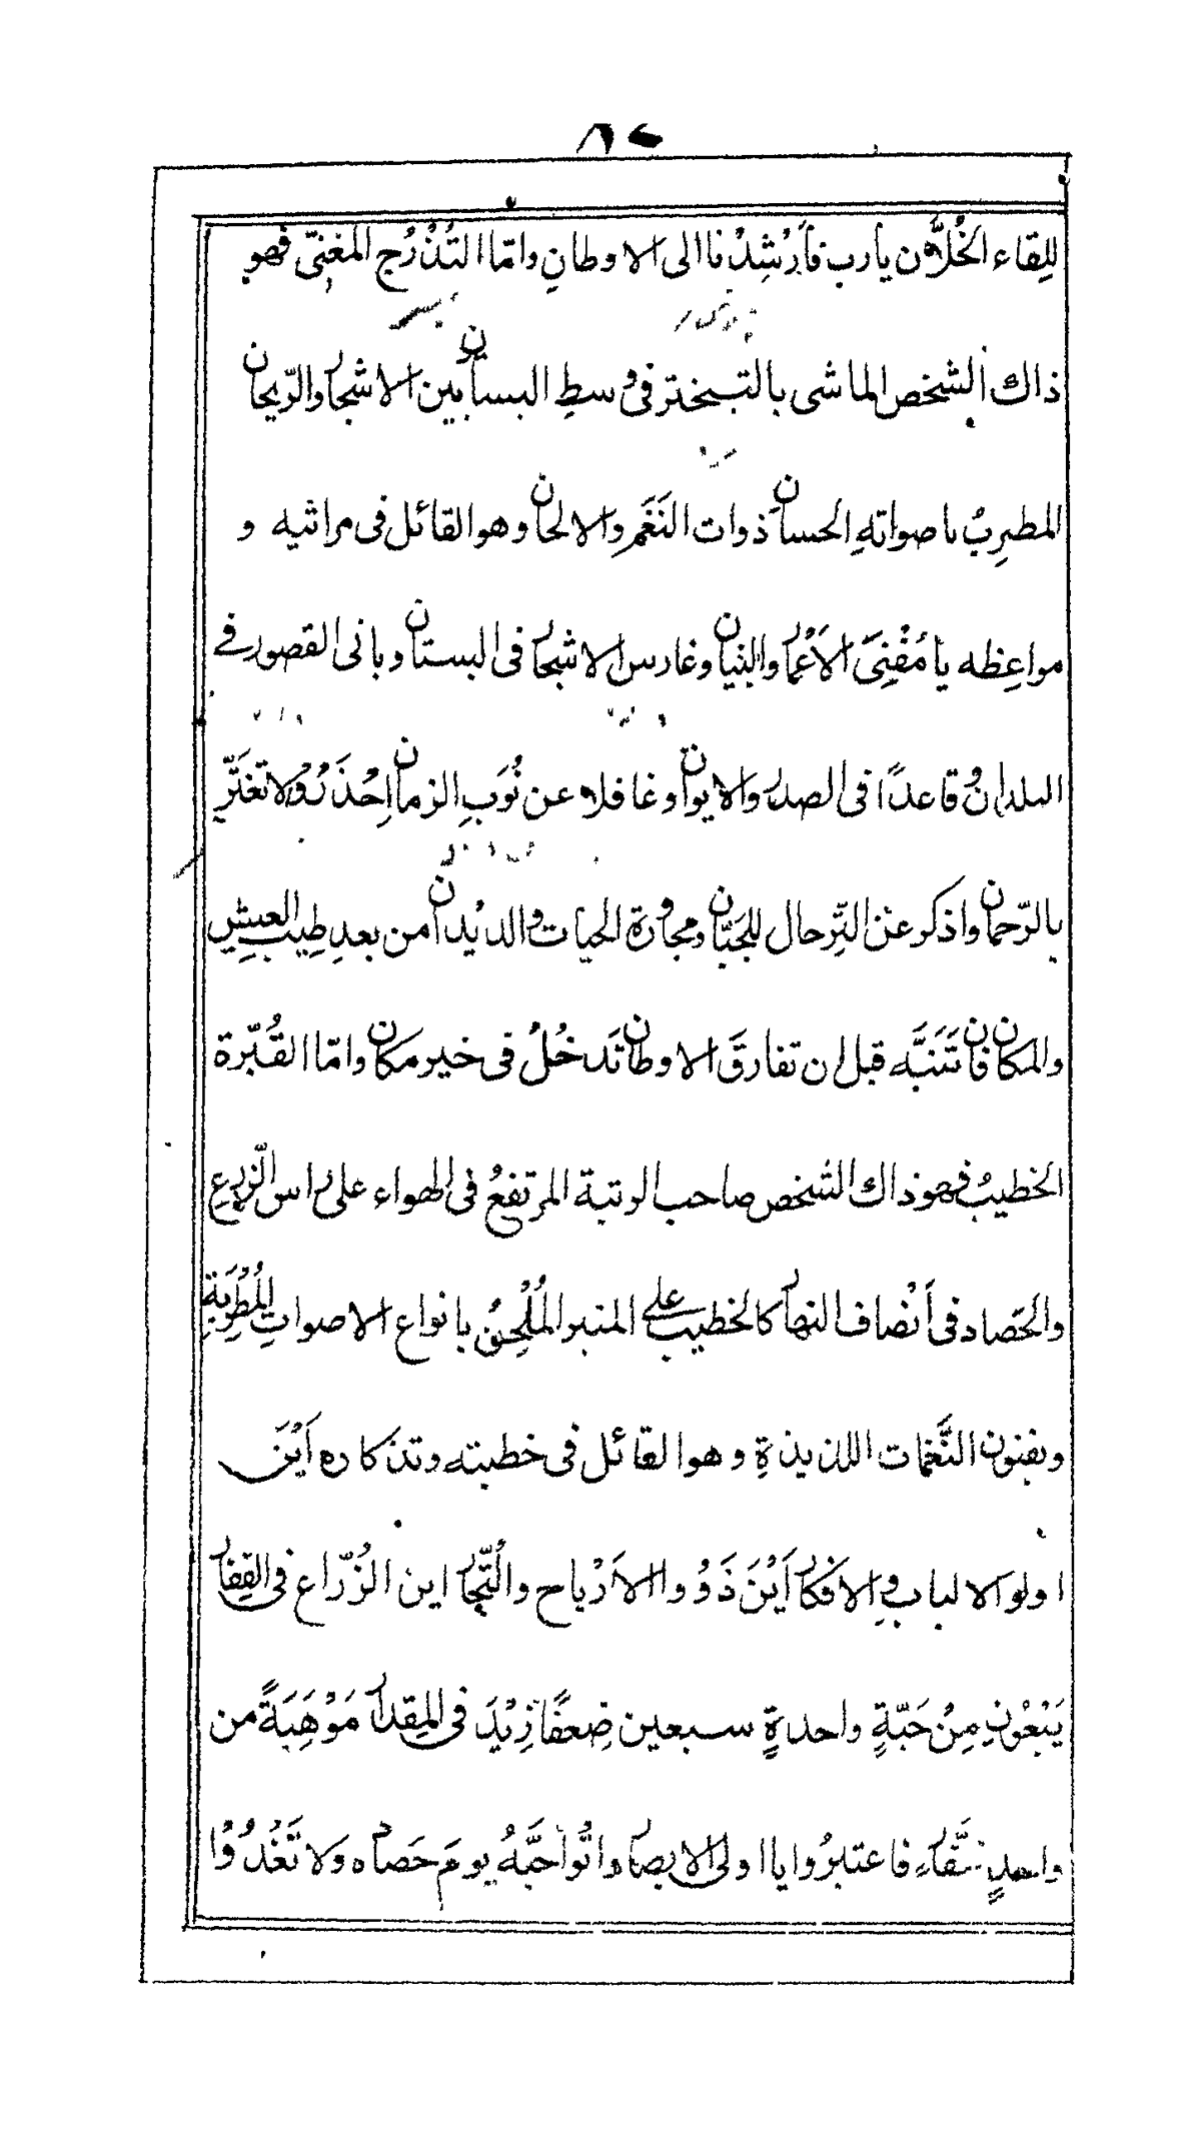 للِقاء الخُلّان يا رب فأَرْشِدْنا الى الاوطانِ وامّا التُذْرُج المغنّى فهو
ذاك الشخص الماشى بالتبختر فى وسطِ البستان بين الاشجار والرّيحان
المطرِبُ باصواتهِ الحسانِ ذوات النَغَم والالحان وهو القائل فى مراثيه و
مواعِظه يا مُفْنِىَ الأَعْمار والبنيان وغارس الاشجار فى البستان وبانى القصور فے
البلدان وقاعدًا فى الصدر والايوان وغافلاً عن نُوَبِ الزمان اِحْذَرْ ولا تغتَرّ
بالرّحمان واذكر عن التِّرحال للجَبّان ومجاورة الحيّات والديْدان من بعدِ طِيب العيشِ
والمكان فان تَتَنبَّه قبل ان تفارقَ الاوطان تَدخُلُ فى خير مكان وامّا القُبّرة
الخطيبُ فهو ذاك الشخص صاحب الرتبة المرتفعُ فى الهواء على راس الزرعِ
والحَصاد فى أَنْصاف النهار كالخطيب على المنبر المُلْحِنُ بانواع الاصواتِ المُطْرِبَةِ
وبفنون النَّغمات اللذيذةِ وهو القائل فى خطبته وتذكاره اَيْنَ
اولو الالباب والافكار اَيْنَ ذَوُوا الأَرْباح والتُّجّار اين الزُرّاع فى القِفار
يَبْغونِ مِنْ حَبّةٍ واحدةٍ سبعين ضِعفًا زِيْدَ فى المِقدار مَوْهَِبَةً من
واحدٍ غفّار فاعتبرُوا يا اولى الابصار واتُوا حَبَّهُ يومَ حَصاده ولا تَغْدُوْا